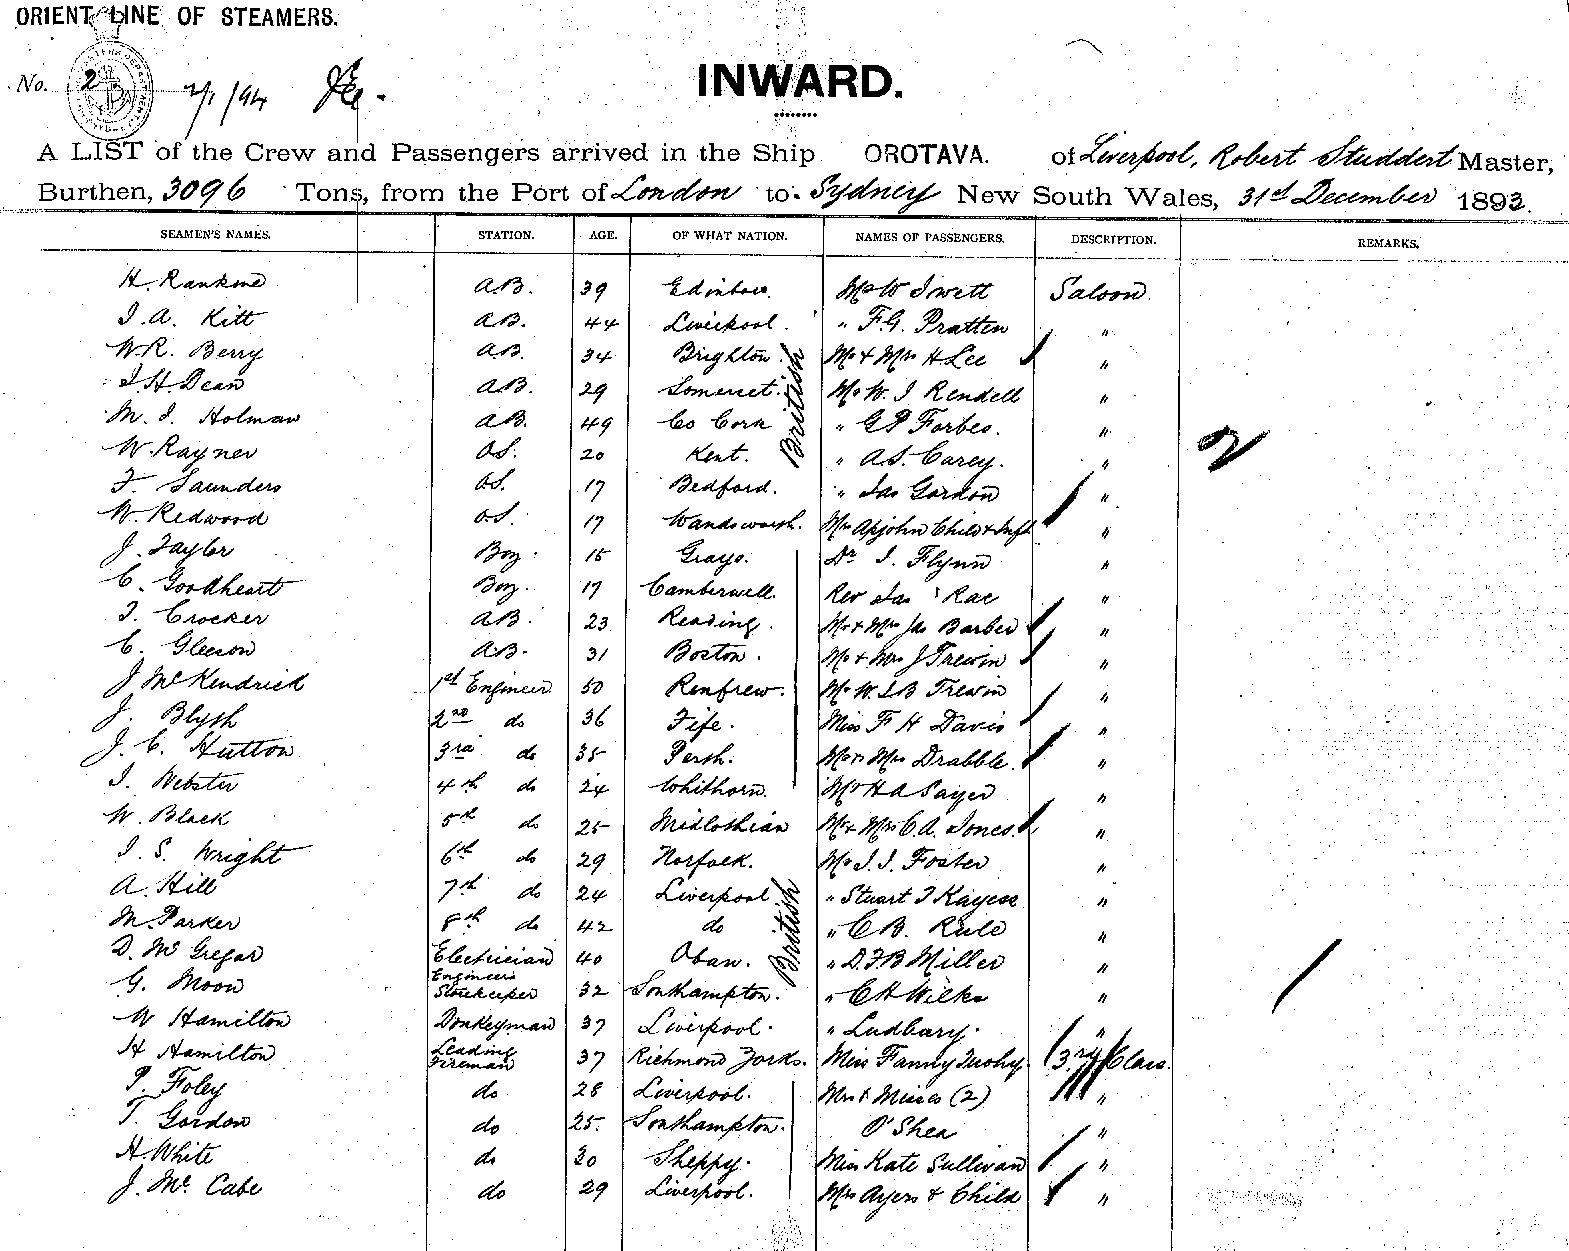 ORIENT LINE OF STEAMERS.
No. 2 2/1/94
INWARD.
A LIST of the Crew and Passengers arrived in the Ship OROTAVA. of Liverpool, Robert Studdert Master,
Burthen, 3096 Tons, from the Port of London to Sydney New South Wales, 31st December 1893.
SEAMEN'S NAMES. STATION. AGE. OF WHAT NATION. NAMES OF PASSENGERS. DESCRIPTION. REMARKS.
H. Rankine A.B. 39 Mr W Saloon
J. A. Kitt A.B. 44 Liverpool. " F.G. Pratten "
W.R. Berry A.B. 34 Brighton. Mr & Mrs H Lee "
J H Dean A.B. 29 Somerset. Mr W. J Rendell "
M. J. Holman A.B. 49 Co Cork " G P Forbes. "
W. Rayner O.S. 20 Kent. " A.S. Carey. "
British
2
F. Saunders O.S. 17 Bedford. " Jas Gordon "
W. Redwood O.S. 17 Wandsworth. Mrs Apjohn Child & Inft "
J. Taylor Boy. 15 Grays. Dr J. Flynn "
C. Goodheart Boy. 17 Camberwell. Rev Jas Rae "
T. Crocker A.B. 23 Reading. Mr & Mrs Jas Barber "
C. Gleeson A.B. 31 Boston. Mr & Mrs J Trewin "
J McKendrick 1st Engineer 50 Renfrew. Mr W. J B Trewin "
J. Blyth 2nd do 36 Fife. Miss F H Davis "
J. C. Hutton 3rd do 35 Perth. Mr & Mrs Drabble. "
J. Webster 4th do 24 Whithorn. Mr H A Sayer "
W. Black 5th do 25 Midlothian Mr & Mrs C A. Jones. "
J. S. Wright 6th do 29 Norfolk. Mr J. J. Foster "
A. Hill 7th do 24 Liverpool " Stuart J "
M. Parker 8th do 42 do " C B. Rule "
D. McGregor Electrician 40 Oban. " D.F.B Miller "
British
G. Moon Engineers Storekeeper 32 Southampton. " C H Wilks "
W Hamilton Donkeyman 37 Liverpool. " Ludbary. "
H Hamilton Leading Fireman 37 Richmond Yorks. Miss Fanny Tuohy. 3rd Class.
P. Foley do 28 Liverpool. Mrs & Misses (2) "
T. Gordon do 25. Southampton. O'Shea "
H. White do 30 Sheppy. Miss Kate Sullivan "
J. McCabe do 29 Liverpool. Mrs Ayers & Child "